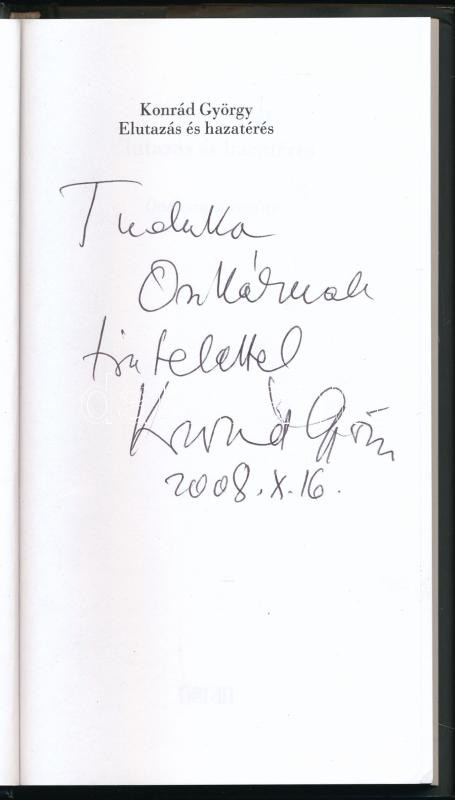 Konrád György
Elutazás és hazatérés
Oszkárnak
tisztelettel
Konrád György
2008. X. 16.